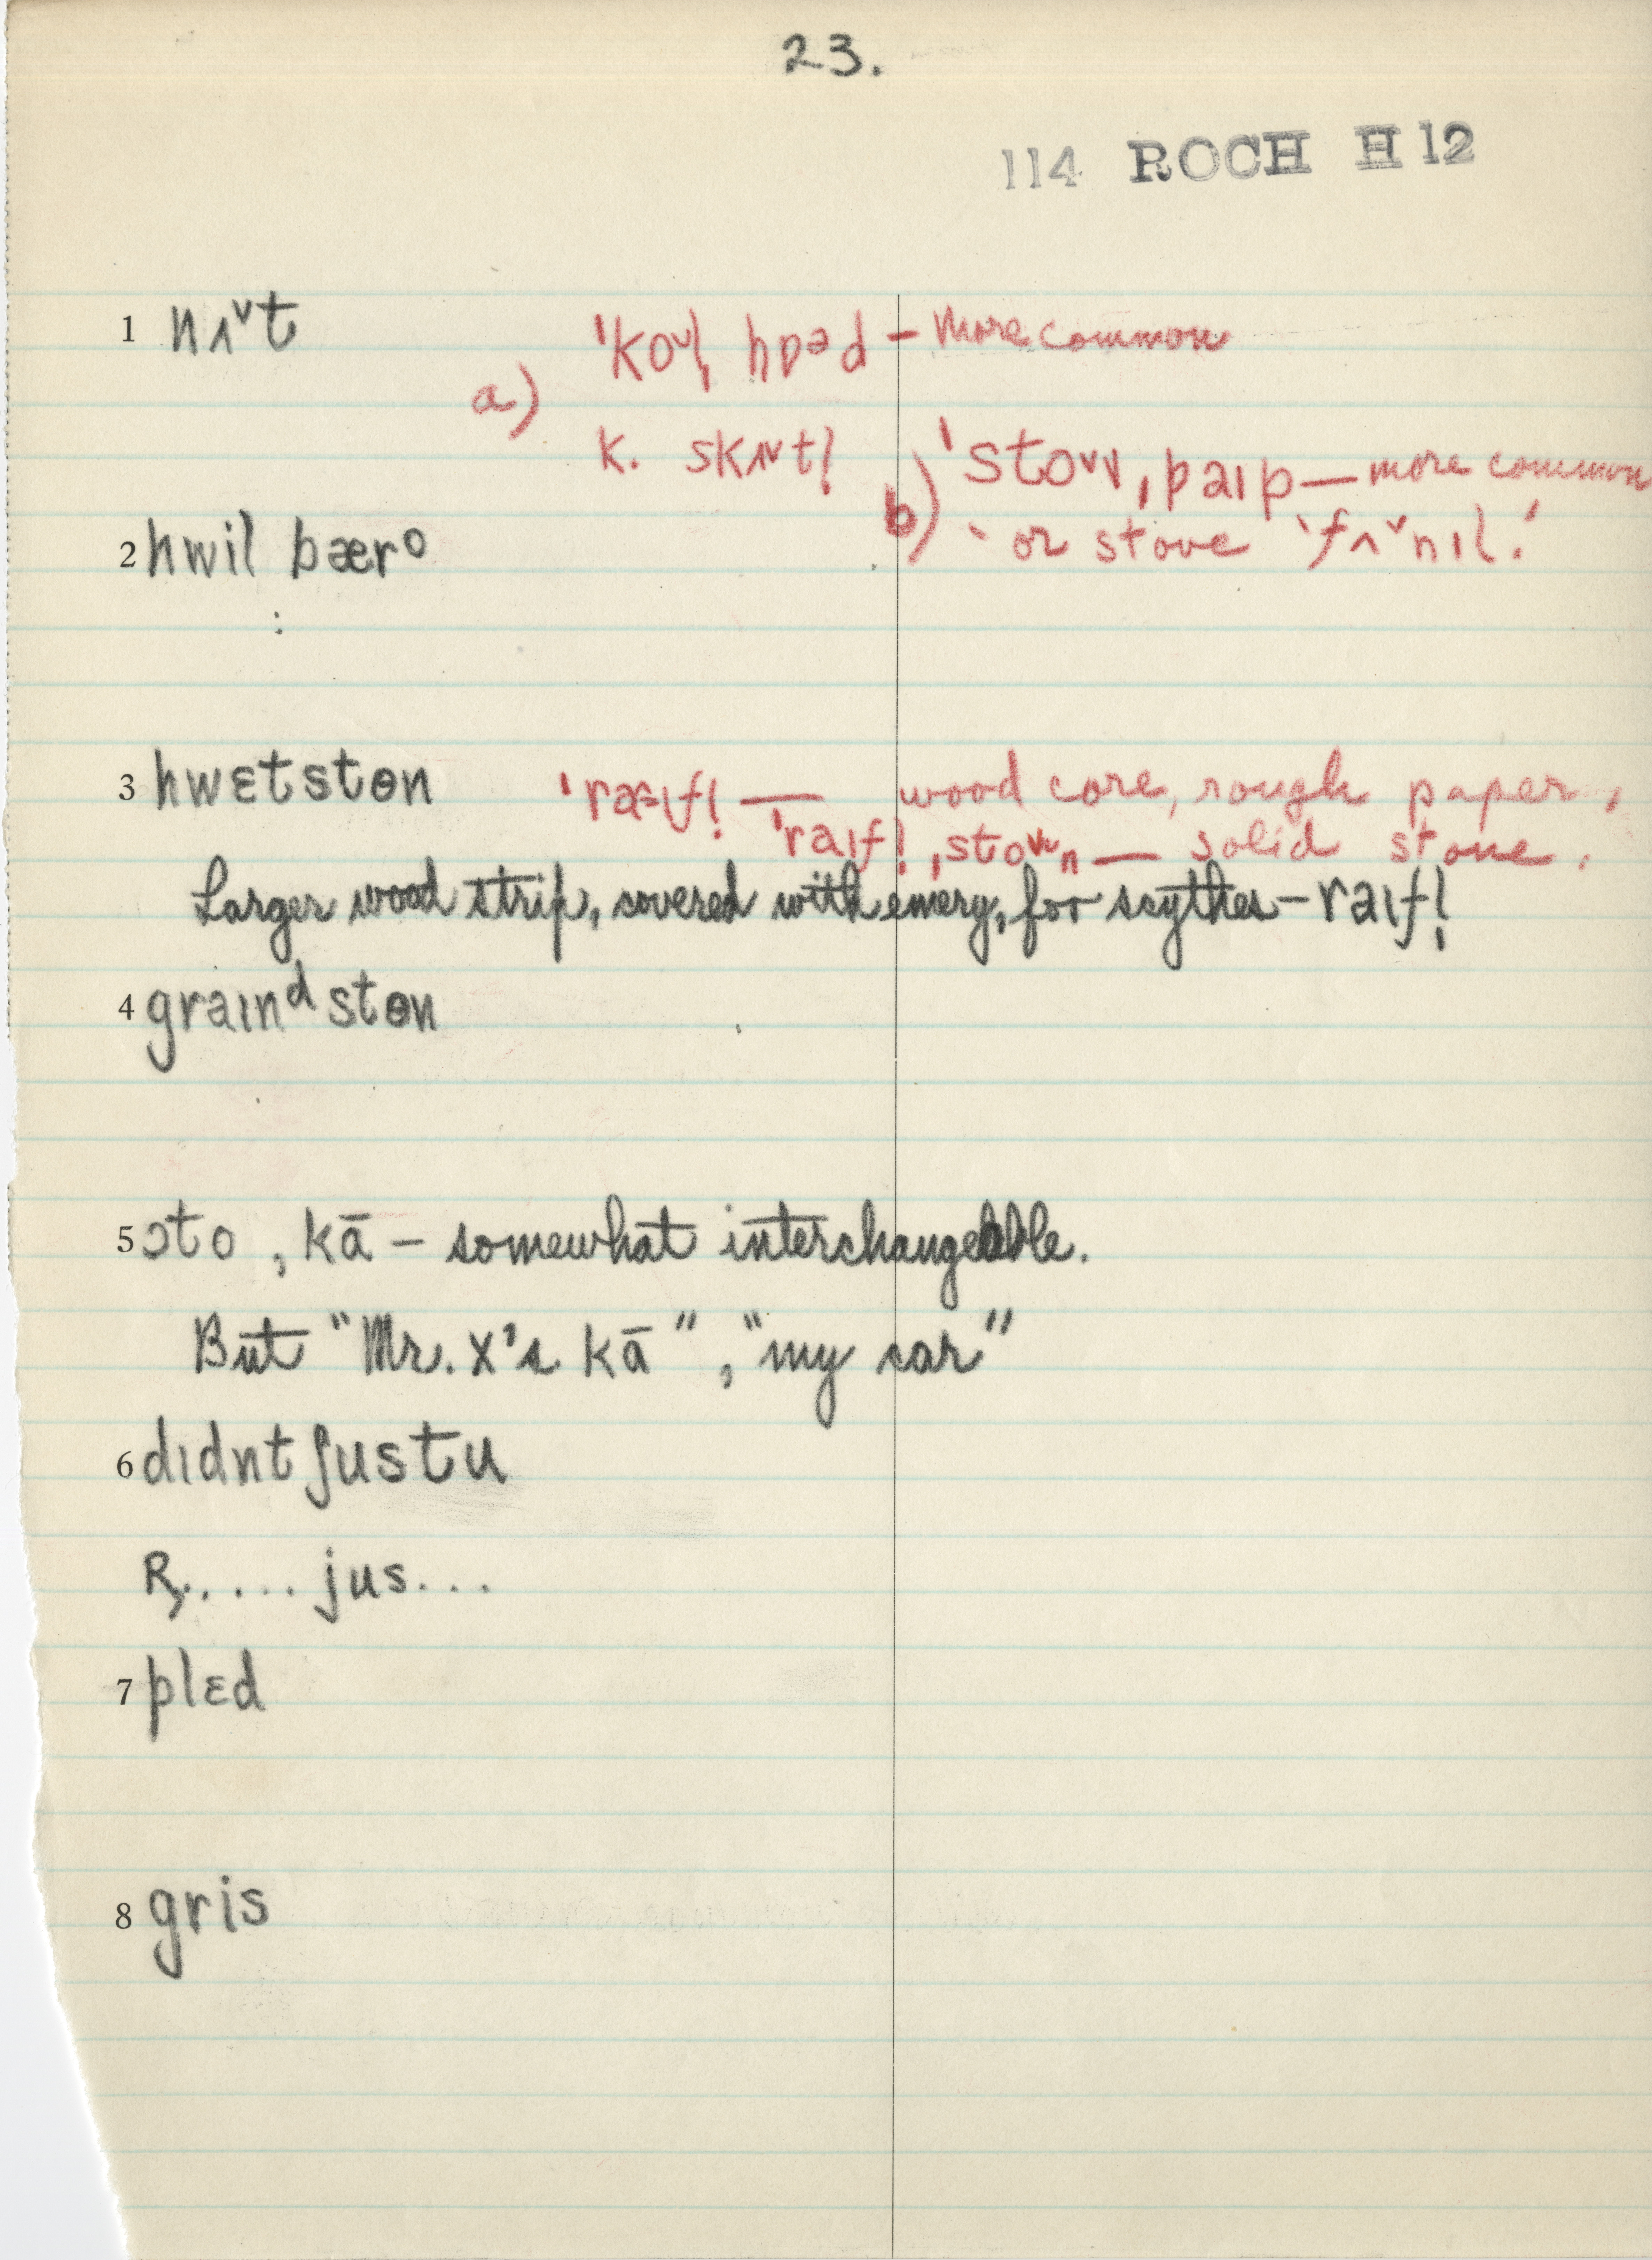 23.
114 ROCH H 12
1 nʌˇt
a) ˈkoʊl̩ hɒəd — more common
k. skʌʊtl̩
b) ˈstoʊv ˌpaɪp — more common
or stove ˈfʌˇnɪl.
2 hwil bærᵒ
:
3 hwɛtstɵn ˈræɪfl̩ — wood core, rough paper,
ˈraɪfl̩ ˌstoʊn — solid stone.
Larger wood strip, covered with emery, for scythes – raɪfl̩
4 graɪnᵈstɵn
5 ɔto , kā – somewhat interchangeable.
But "Mr. X's kā", "my car"
6 dɪdntʃustu
R. .... jus...
7 plɛd
8 gris